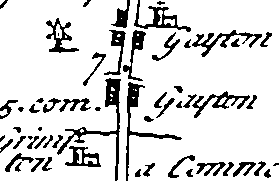 Gayton
7
s. com. Gayton
Grimp
ton
a Comm